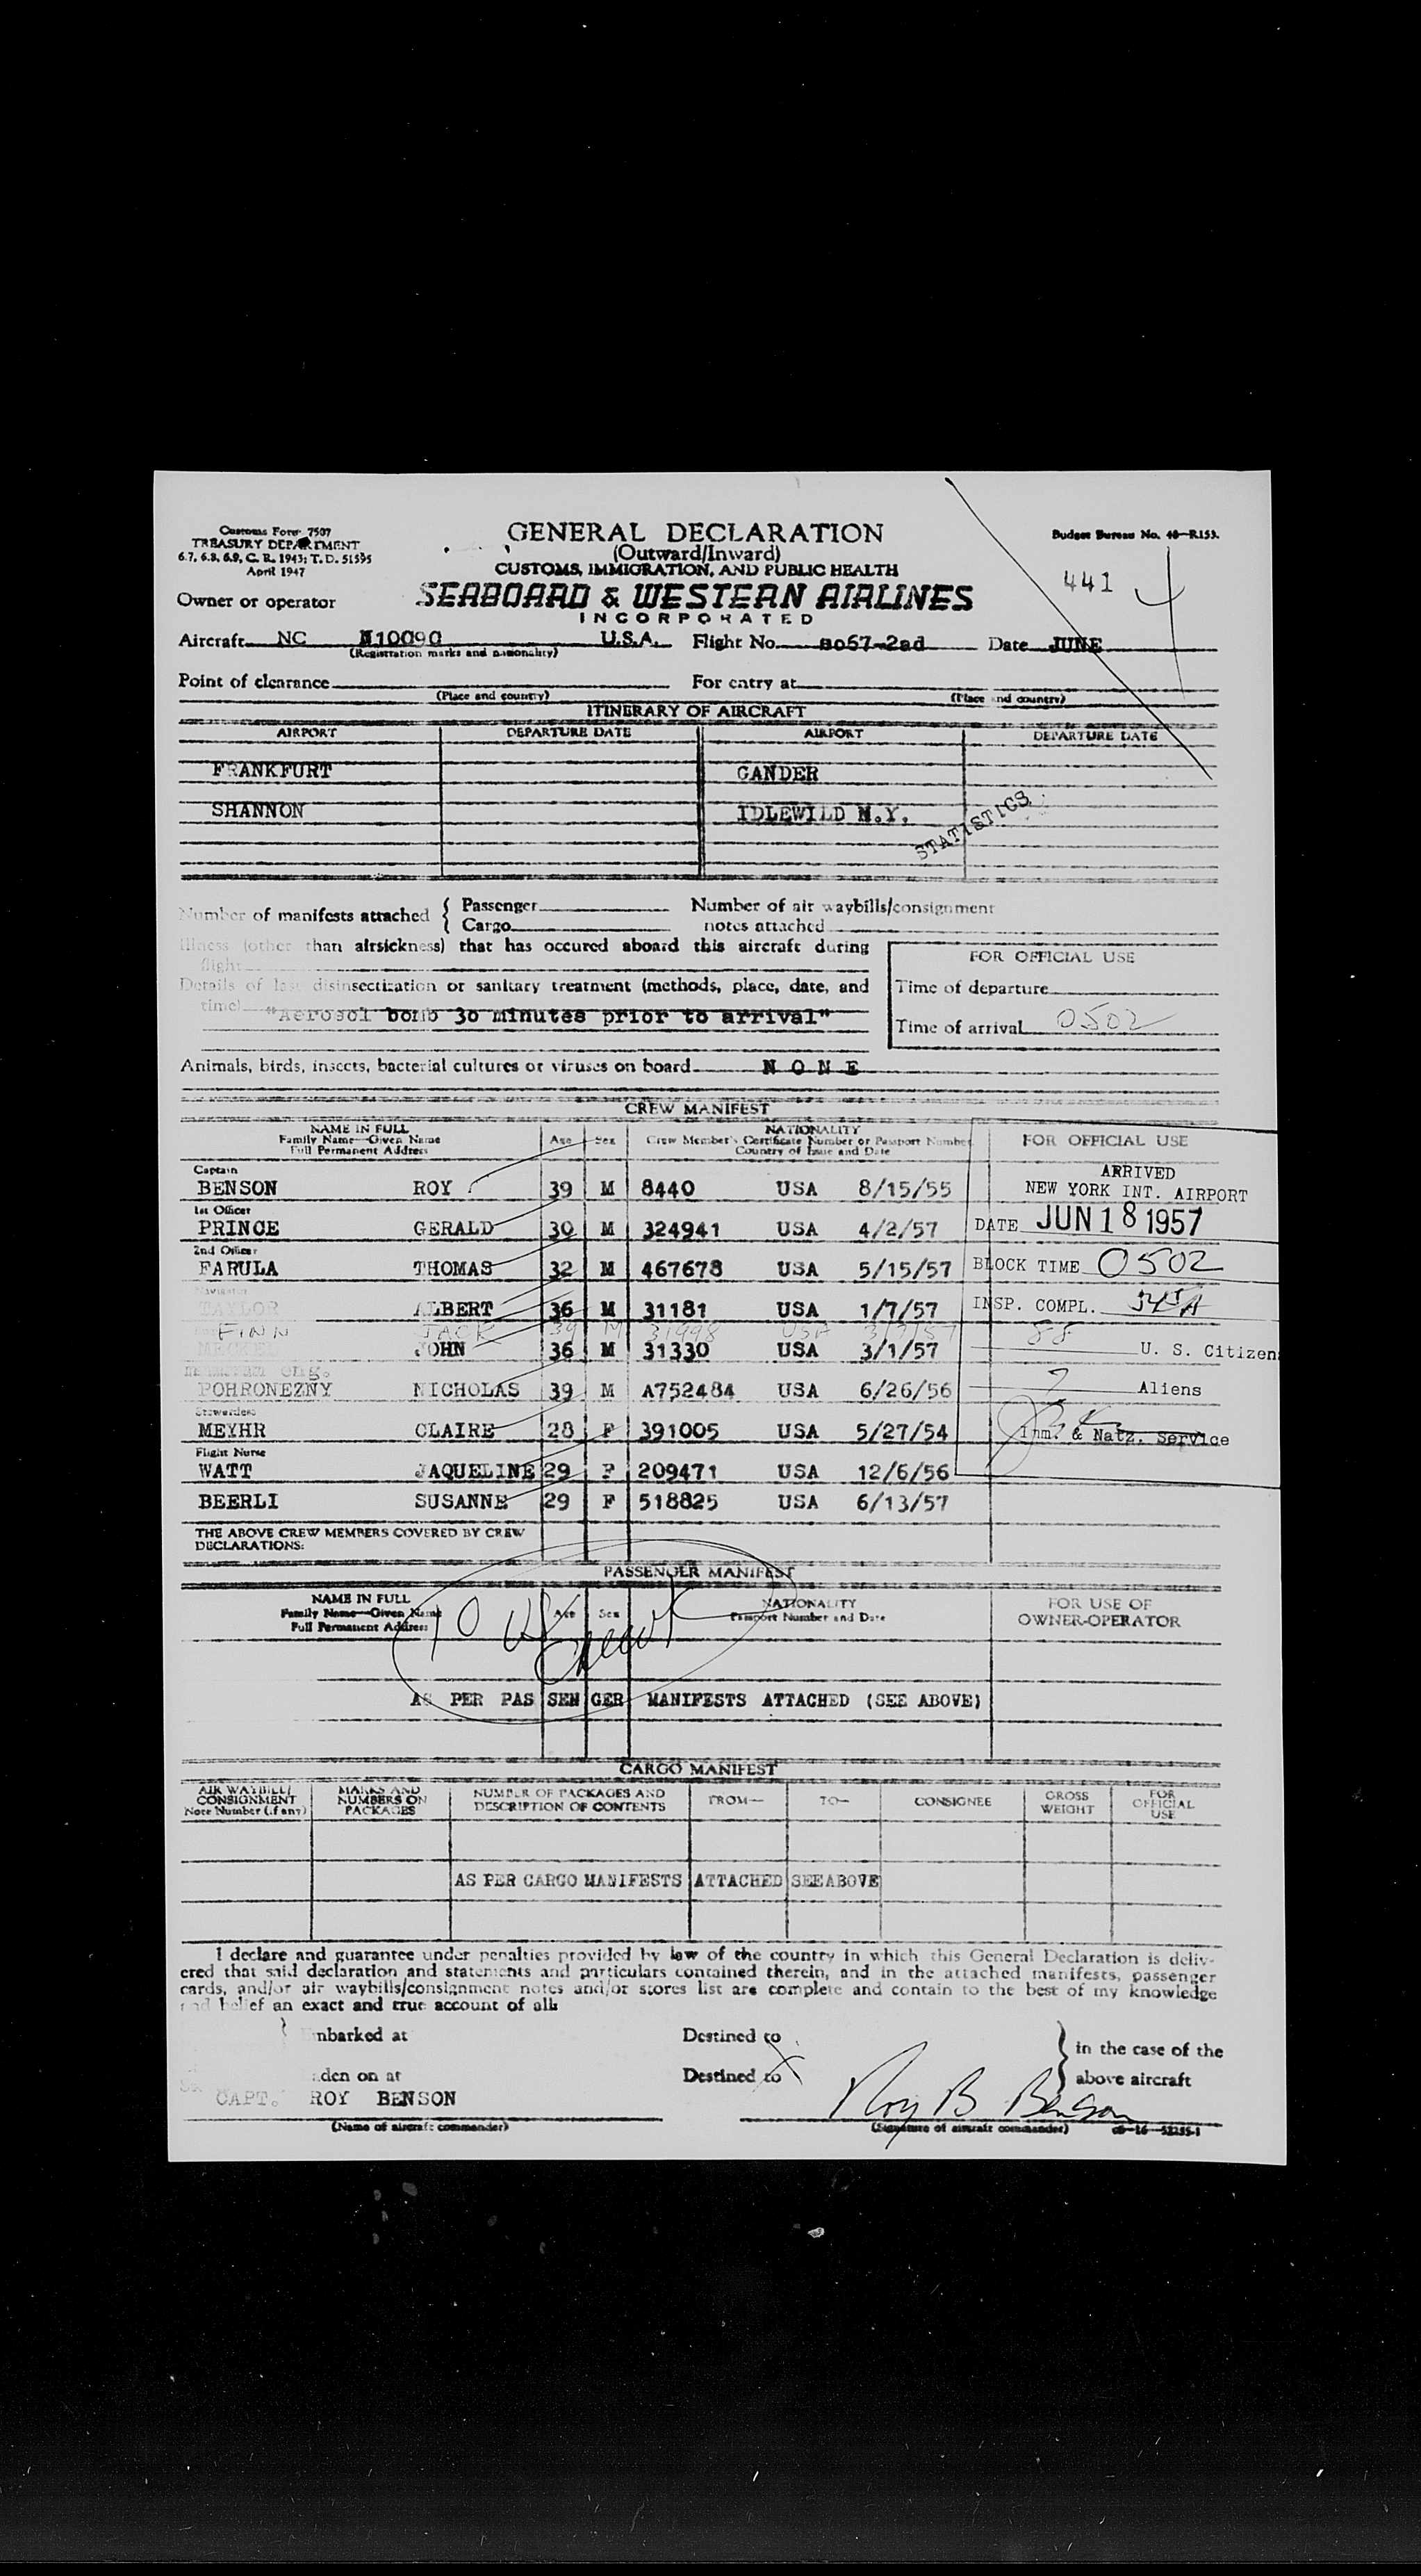 Customs Form 7507
TREASURY DEPARTMENT
6.7, 6.8, 6.9, C. R. 1943; T. D. 51595
April 1947
GENERAL DECLARATION
(Outward/Inward)
CUSTOMS, IMMIGRATION, AND PUBLIC HEALTH
Budget Bureau No. 48-R153.
441
Owner or operator SEABOARD & WESTERN AIRLINES
INCORPORATED
Aircraft NC N10090 U.S.A. Flight No. so57-2ad Date JUNE
(Registration marks and nationality)
Point of clearance For entry at
(Place and country) (Place and country)
ITINERARY OF AIRCRAFT
AIRPORT DEPARTURE DATE AIRPORT DEPARTURE DATE
FRANKFURT GANDER
SHANNON IDLEWILD N.Y.
STATISTICS
Number of manifests attached { Passenger Number of air waybills/consignment
Cargo notes attached
Illness (other than airsickness) that has occured aboard this aircraft during
flight
FOR OFFICIAL USE
Details of last disinsectization or sanitary treatment (methods, place, date, and
time) "Aerosol bomb 30 minutes prior to arrival"
Time of departure
Time of arrival 0502
Animals, birds, insects, bacterial cultures or viruses on board NONE
CREW MANIFEST
NAME IN FULL
Family Name—Given Name
Full Permanent Address
Age Sex
NATIONALITY
Crew Member's Certificate Number or Passport Number
Country of Issue and Date
FOR OFFICIAL USE
Captain
BENSON ROY 39 M 8440 USA 8/15/55
1st Officer
PRINCE GERALD 30 M 324941 USA 4/2/57
2nd Officer
FARULA THOMAS 32 M 467678 USA 5/15/57
Navigator
TAYLOR ALBERT 36 M 31181 USA 1/7/57
FINN JACK 39 M 31998 USA 3/7/57
JOHN 36 M 31330 USA 3/1/57
eng.
POHRONEZNY NICHOLAS 39 M A752484 USA 6/26/56
Stewardess
MEYHR CLAIRE 28 F 391005 USA 5/27/54
Flight Nurse
WATT JAQUELINE 29 F 209471 USA 12/6/56
BEERLI SUSANNE 29 F 518825 USA 6/13/57
ARRIVED
NEW YORK INT. AIRPORT
DATE JUN 18 1957
BLOCK TIME 0502
INSP. COMPL.
88 U. S. Citizen
7 Aliens
Imm. & Natz. Service
THE ABOVE CREW MEMBERS COVERED BY CREW
DECLARATIONS:
PASSENGER MANIFEST
NAME IN FULL
Family Name—Given Name
Full Permanent Address
Age Sex
NATIONALITY
Passport Number and Date
FOR USE OF
OWNER-OPERATOR
10 US
AS PER PASSENGER MANIFESTS ATTACHED (SEE ABOVE)
CARGO MANIFEST
AIR WAYBILL/
CONSIGNMENT
Note Number (if any)
MARKS AND
NUMBERS ON
PACKAGES
NUMBER OF PACKAGES AND
DESCRIPTION OF CONTENTS
FROM— TO— CONSIGNEE
GROSS
WEIGHT
FOR
OFFICIAL
USE
AS PER CARGO MANIFESTS ATTACHED SEE ABOVE
I declare and guarantee under penalties provided by law of the country in which this General Declaration is deliv-
ered that said declaration and statements and particulars contained therein, and in the attached manifests, passenger
cards, and/or air waybills/consignment notes and/or stores list are complete and contain to the best of my knowledge
and belief an exact and true account of all:
mbarked at Destined to in the case of the
den on at Destined to above aircraft
CAPT. ROY BENSON Roy B Benson
(Name of aircraft commander) (Signature of aircraft commander) 16-52255-1